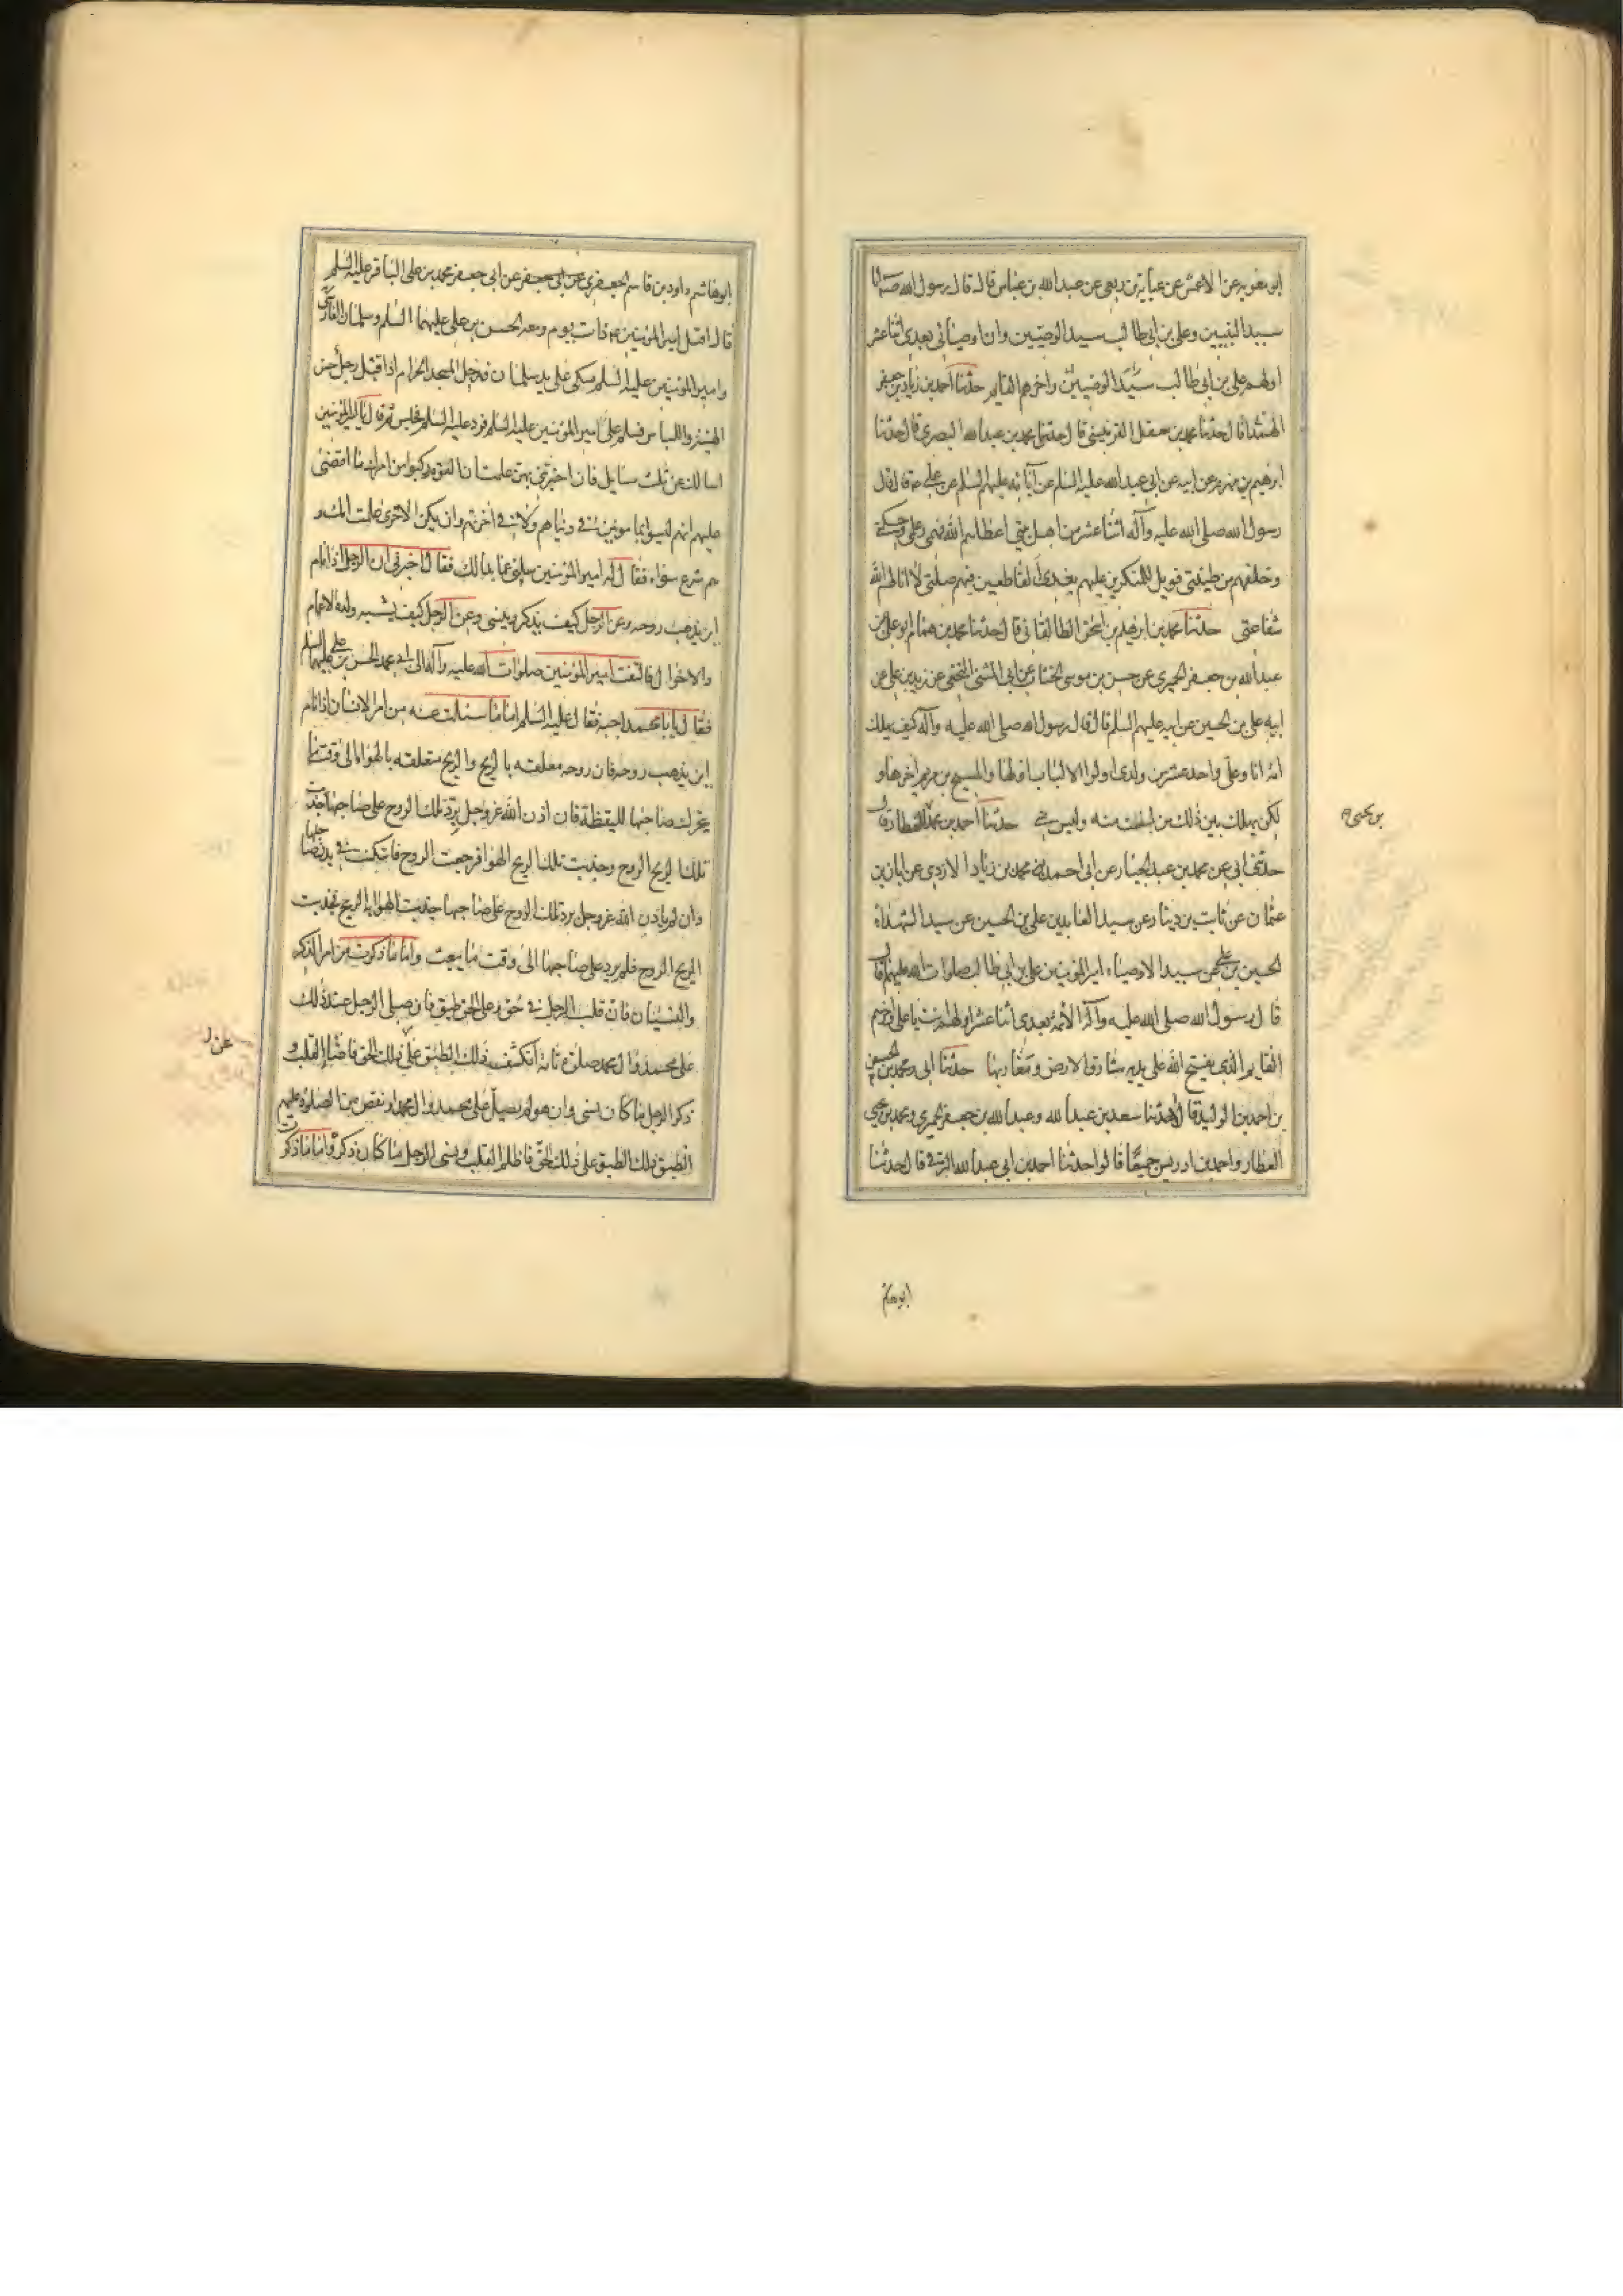 ابو معويه عن الاعمش عن عباية بن ربعى عن عبد الله بن عباس قال قال رسول الله صلى انا
سيد النبيين وعلى بن ابى طالب سيد الوصيين وان اوصيائى بعدى اثنا عشر
اولهم على بن ابى طالب سيد الوصيين واخرهم القايم حدثنا احمد بن زياد بن جعفر
الهمدانى قال حدثنا محمد بن معقل القرميسى قال حدثنا محمد بن عبد الله البصرى قال حدثنا
ابرهيم بن مهزم عن ابيه عن ابى عبد الله عليه السلم عن آبائه عليهم السلم عن على ع قال قال
رسول الله صلى الله عليه وآله اثنا عشر من اهل بيتى اعطاهم الله فهمى وعلمى وحكمتى
وخلقهم من طينتى فويل للمنكرين عليهم بعدى القاطعين فيهم صلتى لا انالهم الله
شفاعتى حدثنا محمد بن ابرهيم بن اسحق الطالقانى قال حدثنا محمد بن همام ابو على عن
عبد الله بن جعفر الحميرى عن حسن بن موسى الخشاب عن ابى المثنى النخعى عن زيد بن على عن
ابيه على بن الحسين عن ابيه عليهم السلم قال قال رسول الله صلى الله عليه وآله كيف يهلك
امة انا وعلى واحد عشر من ولدى اولوا الالباب اولها والمسيح بن مريم اخرها و
لكن يهلك بين ذلك من لست منه وليس منى حدثنا احمد بن محمد العطار قال
بن يحيى
حدثنى ابى عن محمد بن عبد الجبار عن ابى احمد محمد بن زياد الازدى عن ابان بن
عثمان عن ثابت بن دينار عن سيد العابدين على بن الحسين عن سيد الشهداء
الحسين بن على عن سيد الاوصياء امير المؤمنين على بن ابى طالب صلوات الله عليهم قال
قال رسول الله صلى الله عليه وآله الائمة بعدى اثنا عشر اولهم انت يا على واخرهم
القايم الذى يفتح الله على يديه مشارق الارض ومغاربها حدثنا ابى ومحمد بن الحسن
بن احمد بن الوليد قال حدثنا سعد بن عبد الله وعبد الله بن جعفر الحميرى ومحمد بن يحيى
العطار واحمد بن ادريس جميعا قالوا حدثنا احمد بن ابى عبد الله البرقى قال حدثنا
ابو هاشم
ابو هاشم داود بن قاسم الجعفرى عن ابى جعفر عن ابى جعفر محمد بن على الباقر عليه السلم
قال اقبل امير المؤمنين ع ذات يوم ومعه الحسن بن على عليهما السلم وسلمان الفارسى
وامير المؤمنين عليه السلم متكى على يد سلمان فدخل المسجد الحرام اذا قبل رجل حسن
الهيئة واللباس فسلم على امير المؤمنين عليه السلم فرد عليه السلم فجلس ثم قال يا امير المؤمنين
اسالك عن ثلث مسايل فان اخبرتنى بهن علمت ان القوم ركبوا من امرك ما اقضى
عليهم انهم ليسوا بمامونين فى دنياهم ولا فى اخرتهم وان يكن الاخرى علمت انك و
هم شرع سواء فقال له امير المؤمنين سلنى عما بدا لك فقال اخبرنى ان الرجل اذا نام
اين يذهب روحه وعن الرجل كيف يذكر وينسى وعن الرجل كيف يشبه ولده الاعمام
والاخوال فالتفت امير المؤمنين صلوات الله عليه وآله الى ابى محمد الحسن بن على عليهما السلم
فقال يا ابا محمد اجبه فقال عليه السلم اما ما سئالت عنه من امر الانسان اذا نام
اين يذهب روحه فان روحه معلقته بالريح والريح متعلقته بالهواء الى وقت ما
يتحرك صاحبها لليقظة فان اذن الله عز وجل برد تلك الروح على صاحبها جذبت
تلك الريح الروح وجذبت تلك الريح الهوا فرجعت الروح فاسكنت فى بدن صاحبها
وان لم ياذن الله عز وجل برد تلك الروح على صاحبها جذبت الهواء الريح فجذبت
الريح الروح فلم يرد على صاحبها الى وقت ما يبعث واما ما ذكرت من امر الذكر
والنسيان فان قلب الرجل فى حق وعلى الحق طبق فان صلى الرجل عند ذلك
على محمد وال محمد صلوة تامة انكشف ذلك الطبق على ذلك الحق فاضاء القلب و
عن ل
ذكر الرجل ما كان نسى وان هو لم يصل على محمد وال محمد او نقص من الصلوة عليهم
انطبق ذلك الطبق على ذلك الحق فاظلم القلب ونسى الرجل ما كان ذكره واما ما ذكرت